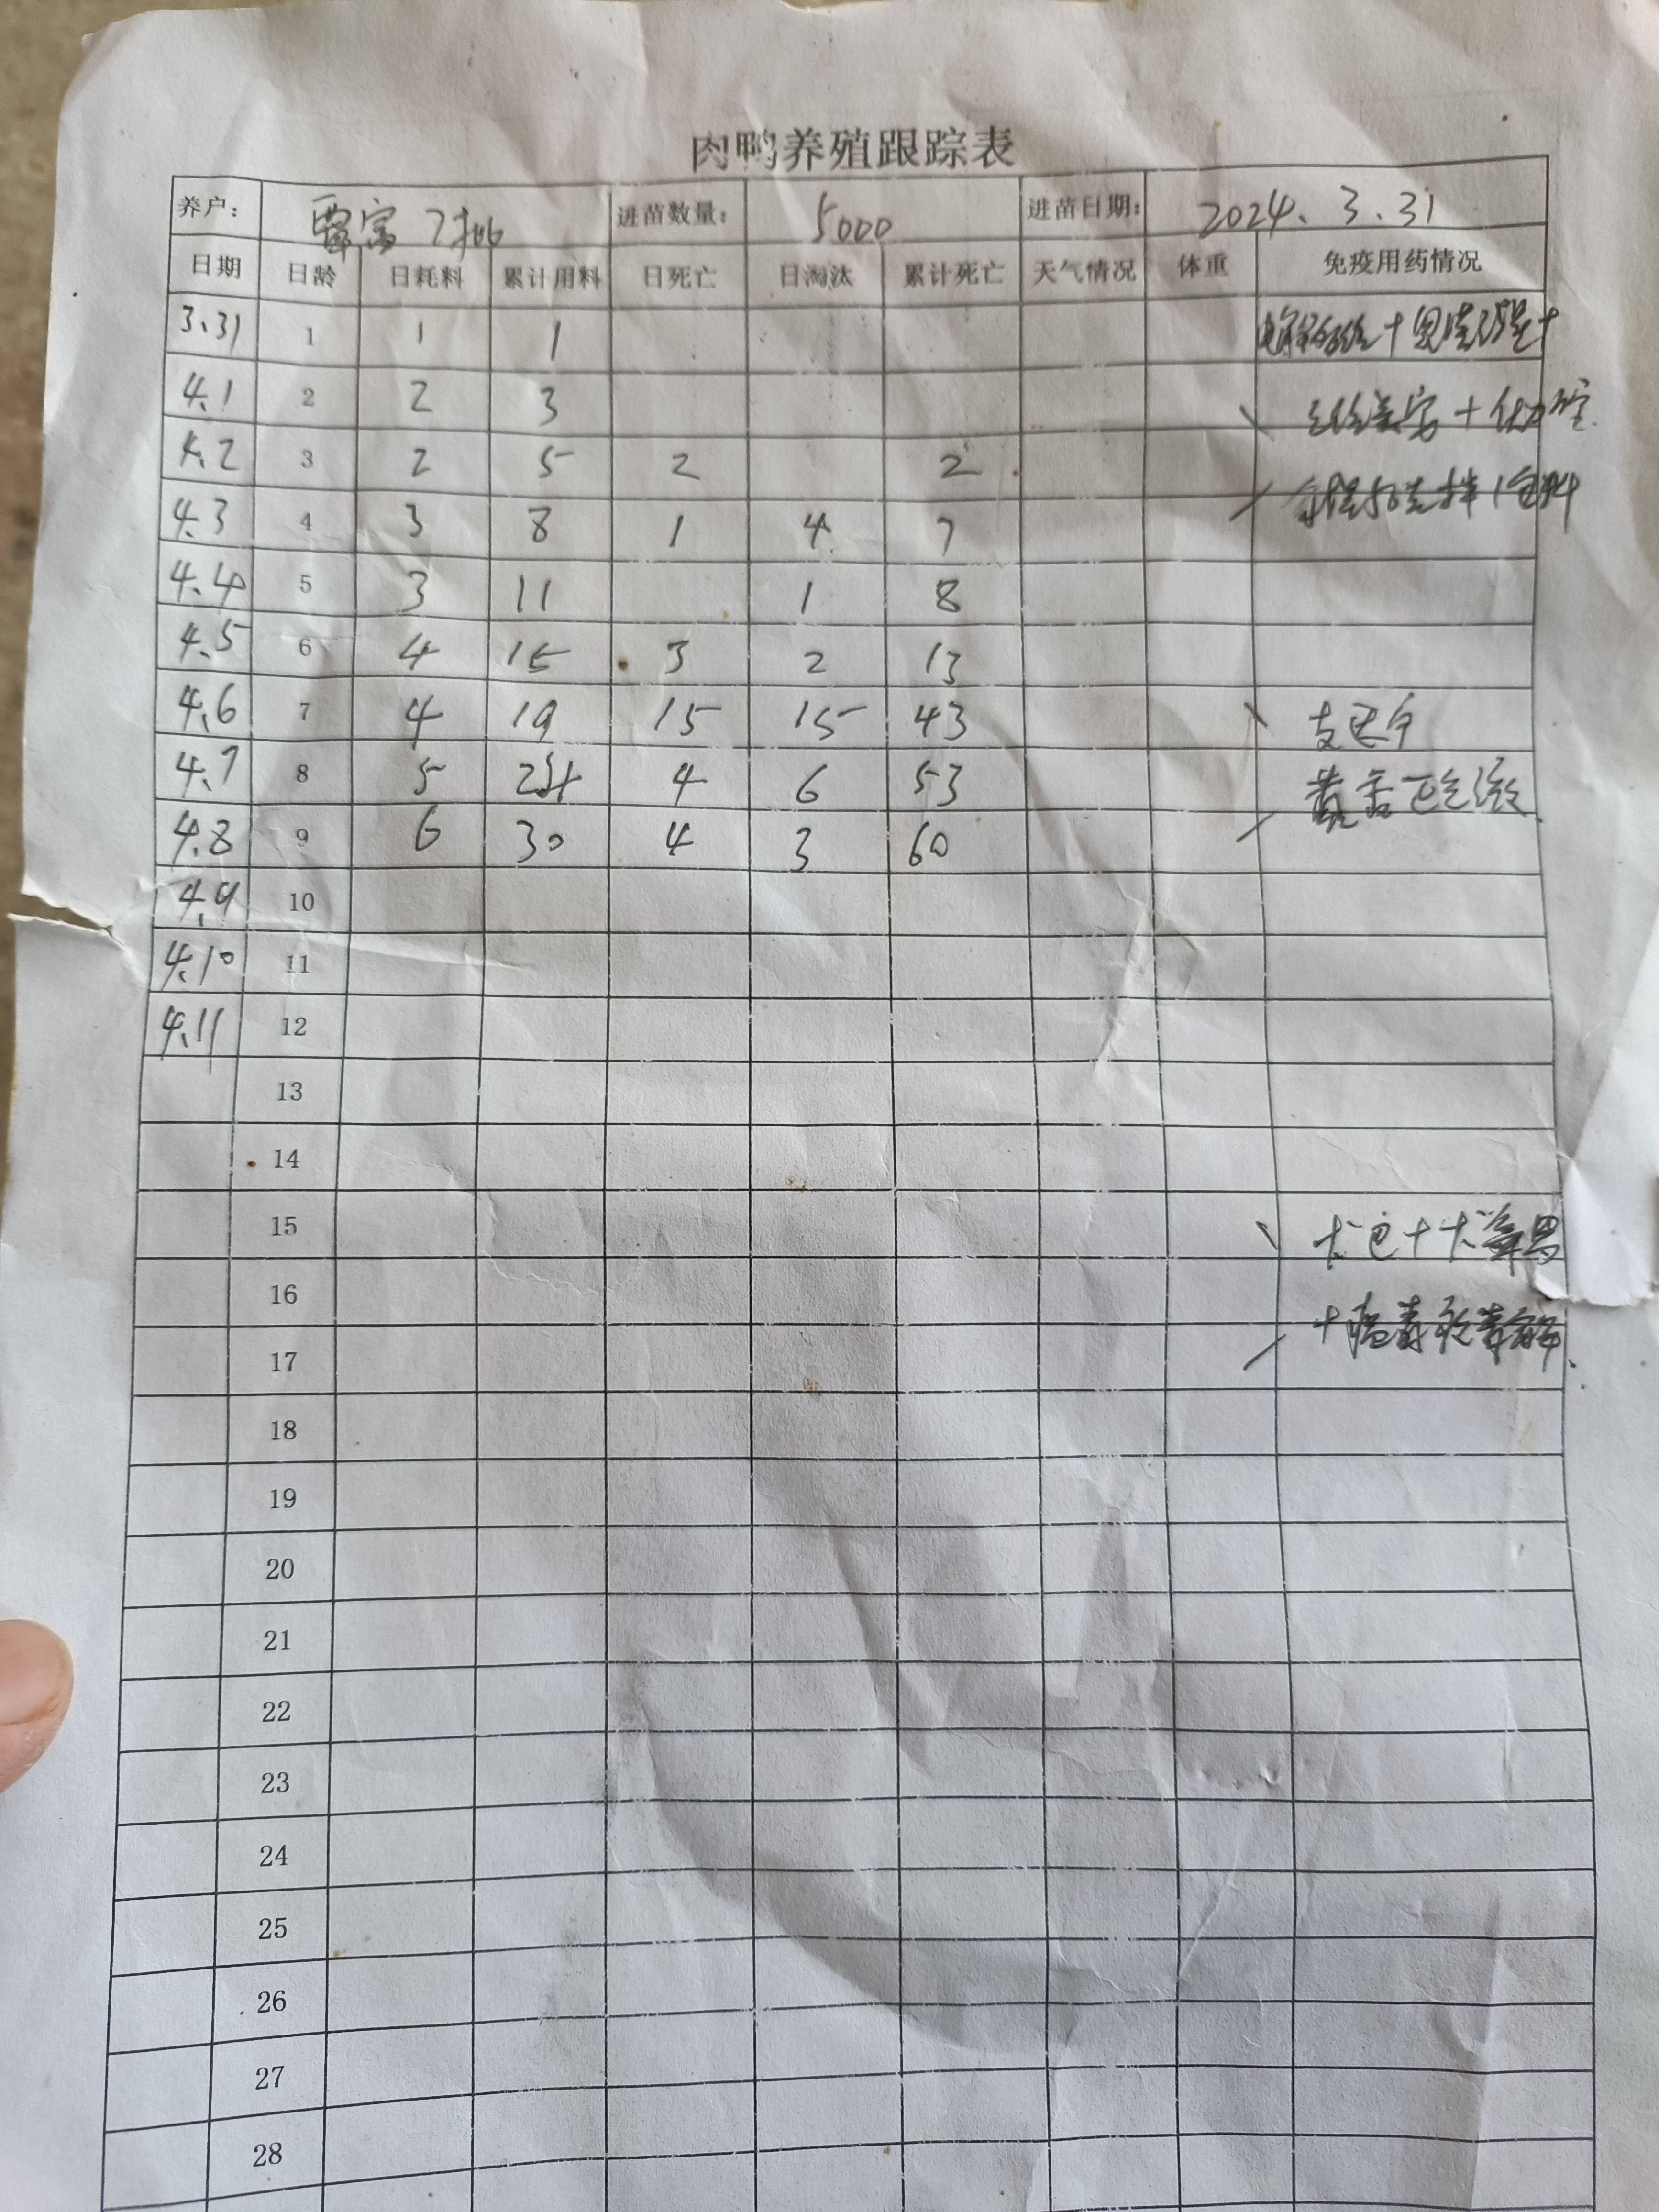 肉鸭养殖跟踪表
养户： 覃富 7批 进苗数量： 5000 进苗日期： 2024.3.31
日期 日龄 日耗料 累计用料 日死亡 日淘汰 累计死亡 天气情况 体重 免疫用药情况
3.31 1 1 1
4.1 2 2 3
4.2 3 2 5 2 2
4.3 4 3 8 1 4 7
4.4 5 3 11 1 8
4.5 6 4 15 3 2 13
4.6 7 4 19 15 15 43
4.7 8 5 24 4 6 53 黄 正
4.8 9 6 30 4 3 60
4.9 10
4.10 11
4.11 12
13
14
15
16 +
17
18
19
20
21
22
23
24
25
26
27
28